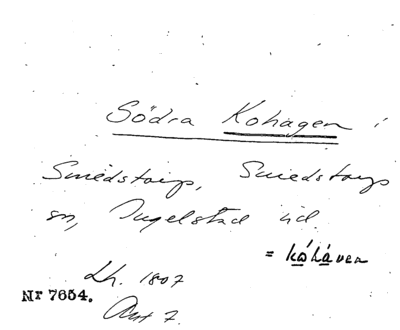 Södra Kohagen i
Smedstorps, Smedstorps
sn, Ingelstad hd.
= kóháven
Lh. 1807
Nr 7654.
Akt 7.